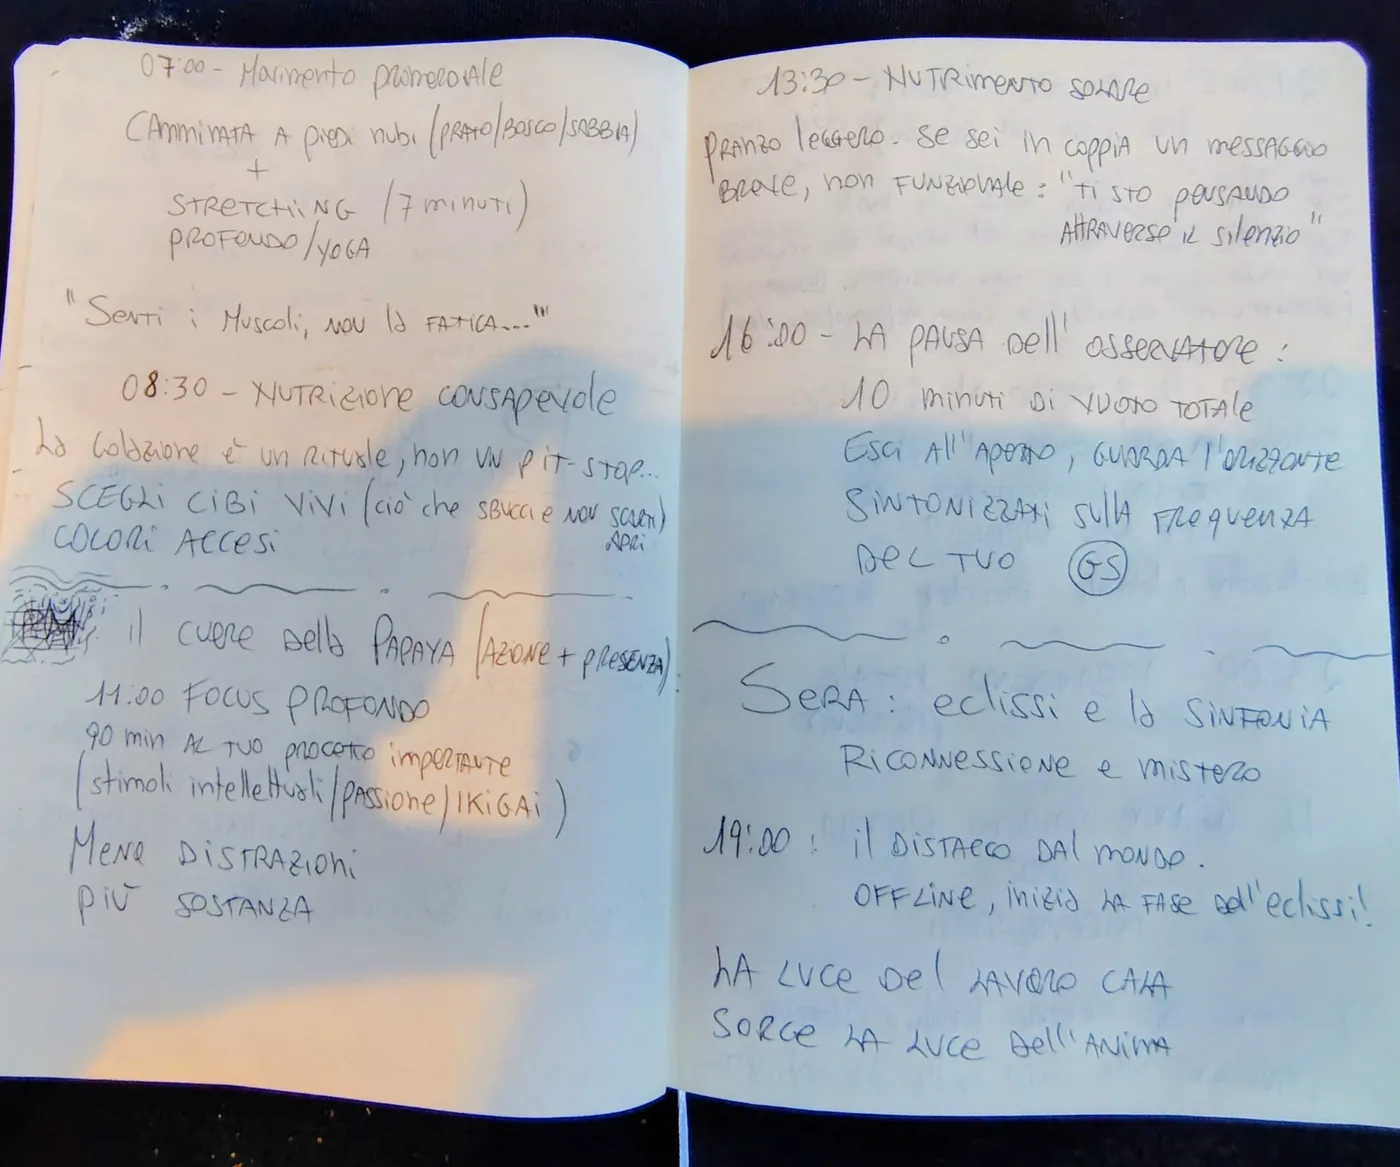 07:00 - Movimento primordiale
CAMMINATA A piedi nudi (PRATO/BOSCO/SABBIA)
+
STRETCHING (7 minuti)
PROFONDO/YOGA
"Senti i Muscoli, non la FATICA..."
08:30 - NUTRIZIONE CONSAPEVOLE
La Colazione è un RITUALE, non UN PIT-STOP...
SCEGLI CIBI VIVI (ciò che SBUCCI e NON SCARTI)
APRI
COLORI ACCESI
il CUORE della PAPAYA (AZIONE + PRESENZA)
11:00 FOCUS PROFONDO
90 min AL TUO PROGETTO IMPORTANTE
(stimoli intellettuali/PASSIONE/IKIGAI)
MENO DISTRAZIONI
PIÙ SOSTANZA
13:30 - NUTRIMENTO SOLARE
PRANZO leggero. Se sei in COPPIA UN MESSAGGIO
BREVE, non FUNZIONALE: "TI STO PENSANDO
ATTRAVERSO IL SILENZIO"
16:00 - LA PAUSA Dell'OSSERVATORE:
10 minuti DI VUOTO TOTALE
Esci All'APERTO, GUARDA l'ORIZZONTE
SINTONIZZATI SULLA FREQUENZA
DEL TUO GS
SERA: eclissi e la SINFONIA
RICONNESSIONE e MISTERO
19:00: il DISTACCO DAL MONDO.
OFFLINE, inizia LA FASE dell'eclissi!
LA LUCE Del LAVORO CALA
SORGE LA LUCE Dell'ANIMA